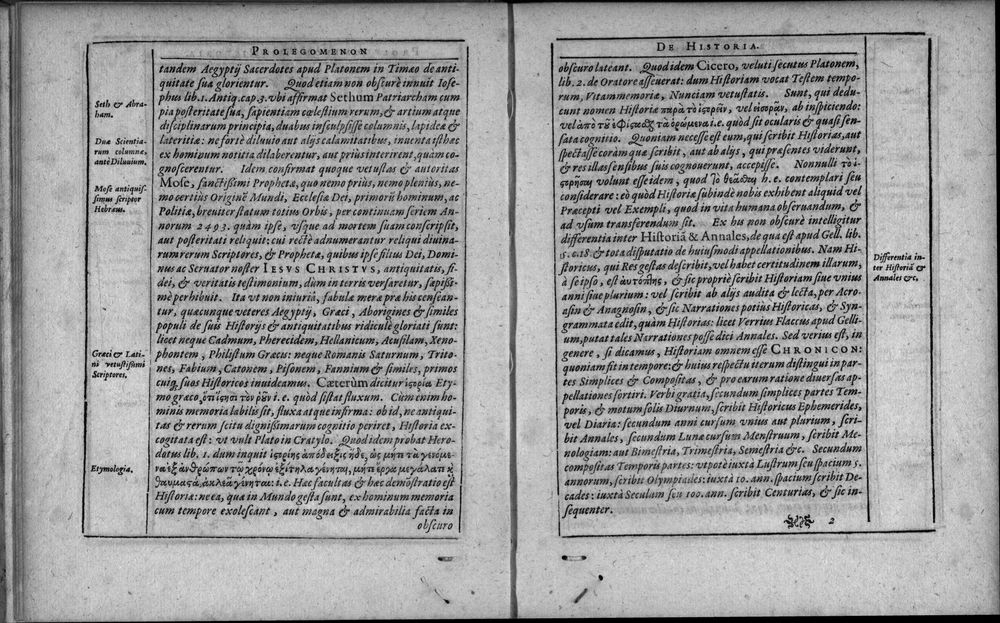 PROLEGOMENON
tandem Aegyptij Sacerdotes apud Platonem in Timæo de anti-
quitate sua glorientur. Quod etiam non obscurè innuit Iose-
phus lib. 1. Antiq. cap. 3. vbi affirmat Sethum Patriarcham cum
pia posteritate sua, sapientiam cœlestium rerum, & artium atque
disciplinarum principia, duabus insculpsisse columnis, lapidea &
lateritia: ne forte diluuio aut alijs calamitatibus, inuenta isthæc
ex hominum notitia dilaberentur, aut priùs interirent, quàm co-
gnoscerentur. Idem confirmat quoque vetustas & autoritas
Mose, sanctissimi Prophetæ, quo nemo prius, nemo plenius, ne-
mo certiùs Origine Mundi, Ecclesiæ Dei, primorũ hominum, ac
Politiæ, breuiter statum totius Orbis, per continuam seriem An-
norum 2493. quàm ipse, vsque ad mortem suam conscripsit,
aut posteritati reliquit: cui rectè adnumerantur reliqui diuina-
rum rerum Scriptores, & Prophetæ, quibus ipse filius Dei, Domi-
nus ac Seruator noster IESVS CHRISTVS, antiquitatis, fi-
dei, & veritatis testimonium, dum in terris versaretur, sæpissi-
mè perhibuit. Ita vt non iniuriâ, fabulæ meræ præ his censean-
tur, quæcunque veteres Aegyptij, Græci, Aborigines & similes
populi de suis Historijs & antiquitatibus ridiculè gloriati sunt:
licet neque Cadmum, Pherecidem, Hellanicum, Acusilam, Xeno-
phontem, Philistum Græcus: neque Romanis Saturnum, Trito-
nes, Fabium, Catonem, Pisonem, Fannium & similes, primos
cuiq; suos Historicos inuideamus. Cæterùm dicitur ἱστορία Ety-
mo græco, ἀπὸ ἱστησι τὸν ῥοῦν i.e. quòd sistat fluxum. Cùm enim ho-
minis memoria labilis sit, fluxa atque infirma: ob id, ne antiqui-
tas & rerum scitu dignissimarum cognitio periret, Historia ex-
cogitata est: vt vult Plato in Cratylo. Quod idem probat Hero-
dotus lib. 1. dum inquit ἱστορίης ἀπόδειξις ἥδε, ὡς μήτε τὰ γενόμε-
να ἐξ ἀνθρώπων τῷ χρόνῳ ἐξίτηλα γένηται, μήτε ἔργα μεγάλα τὲ κ
θαυμαςὰ, ἀκλεᾶ γένηται: i.e. Hæc facultas & hæc demõstratio est
Historiæ: ne ea, quæ in Mundo gesta sunt, ex hominum memoria
cum tempore exolescant, aut magna & admirabilia facta in
obscuro
Seth & Abra-
ham.
Duæ Scientia-
rum columnæ,
antè Diluuium.
Mose antiquis-
simus scriptor
Hebræus.
Græci & Lati-
ni vetustissimi
Scriptores.
Etymologia.
DE HISTORIA.
obscuro lateant. Quod idem Cicero, veluti secutus Platonem,
lib. 2. de Oratore asseuerat: dum Historiam vocat Testem tempo-
rum, Vitam memoriæ, Nunciam vetustatis. Sunt, qui dedu-
cunt nomen Historiæ παρὰ τὸ ἱστορεῖν, vel εἰσορᾶν, ab inspiciendo:
vel ἀπὸ τοῦ ἐφίςαςθαι τὰ ὁρώμενα i.e. quòd sit ocularis & quasi sen-
sata cognitio. Quoniam necesse est eum, qui scribit Historias, aut
spectasse coràm quæ scribit, aut ab alijs, qui præsentes viderunt,
& res illas sensibus suis cognouerunt, accepisse. Nonnulli τὸ ἱ-
στορῆσαι volunt esse idem, quod τὸ θεᾶσθαι h.e. contemplari seu
considerare: eò quòd Historiæ subinde nobis exhibent aliquid vel
Præcepti vel Exempli, quod in vita humana obseruandum, &
ad vsum transferendum sit. Ex his non obscurè intelligitur
differentia inter Historiã & Annales, de qua est apud Gell. lib.
5. c. 18. & tota disputatio de huiusmodi appellationibus. Nam Hi-
storicus, qui Res gestas describit, vel habet certitudinem illarum,
à se ipso, est αὐτόπτης, & sic propriè scribit Historiam siue vnius
anni siue plurium: vel scribit ab alijs audita & lecta, per Acro-
asin & Anagnosin, & sic Narrationes potiùs Historicas, & Syn-
grammata edit, quàm Historias: licet Verrius Flaccus apud Gelli-
um, putat tales Narrationes posse dici Annales. Sed verius est, in
genere, si dicamus, Historiam omnem esse CHRONICON:
quoniam sit in tempore: & huius respectu iterum distingui in par-
tes Simplices & Compositas, & pro earum ratione diuersas ap-
pellationes sortiri. Verbi gratia, secundum simplices partes Tem-
poris, & motum solis Diurnum, scribit Historicus Ephemerides,
vel Diaria: secundum anni cursum vnius aut plurium, scri-
bit Annales, secundum Lunæ cursum Menstruum, scribit Me-
nologiam: aut Bimestria, Trimestria, Semestria &c. Secundum
compositas Temporis partes: vt pote iuxtà Lustrum seu spacium 5.
annorum, scribit Olympiades: iuxtà 10. ann. spacium scribit De-
cades: iuxtà Seculum seu 100. ann. scribit Centurias, & sic in-
sequenter.
2
Differentia in-
ter Historiã &
Annales &c.